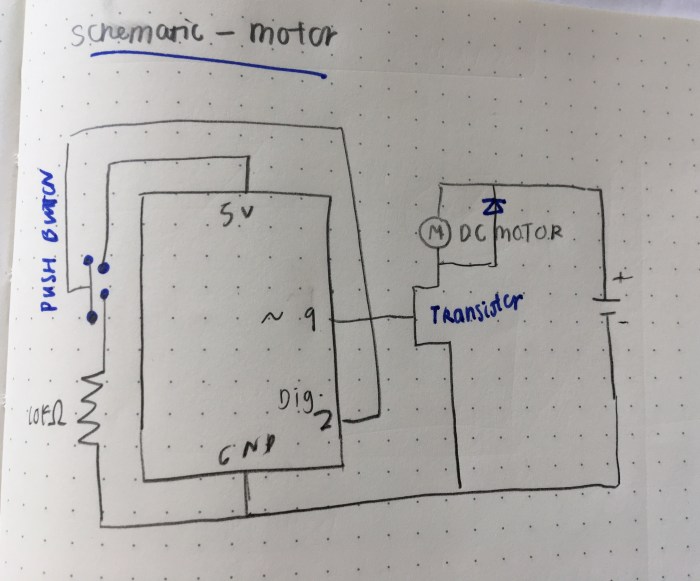 schematic - motor
PUSH BUTTON
5V
M
DC MOTOR
+
~ 9
Transistor
-
10KΩ
Dig.
2
GND